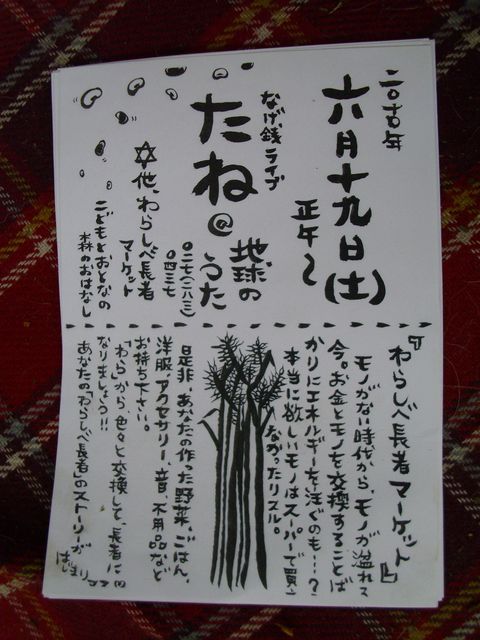 二〇十年
六月十九日(土)
正午〜
なげ銭ライブ
たね@
地球の
うた
〇二七(二八三)
〇四三七
✡他、わらしべ長者
マーケット
こどもとおとなの
森のおはなし
『わらしべ長者マーケット』
モノがない時代から、モノが溢れて
今。お金とモノを交換することば
かりにエネルギーを注ぐのも…?
本当に欲しいモノはスーパーで買え
なかったりスル。
是非、あなたの作った野菜、ごはん、
洋服、アクセサリー、音、不用品など
お持ち下さい。
「わらから、色々と交換して、長者に
なりましょう!!
あなたの「わらしべ長者」のストーリーが
はじまり